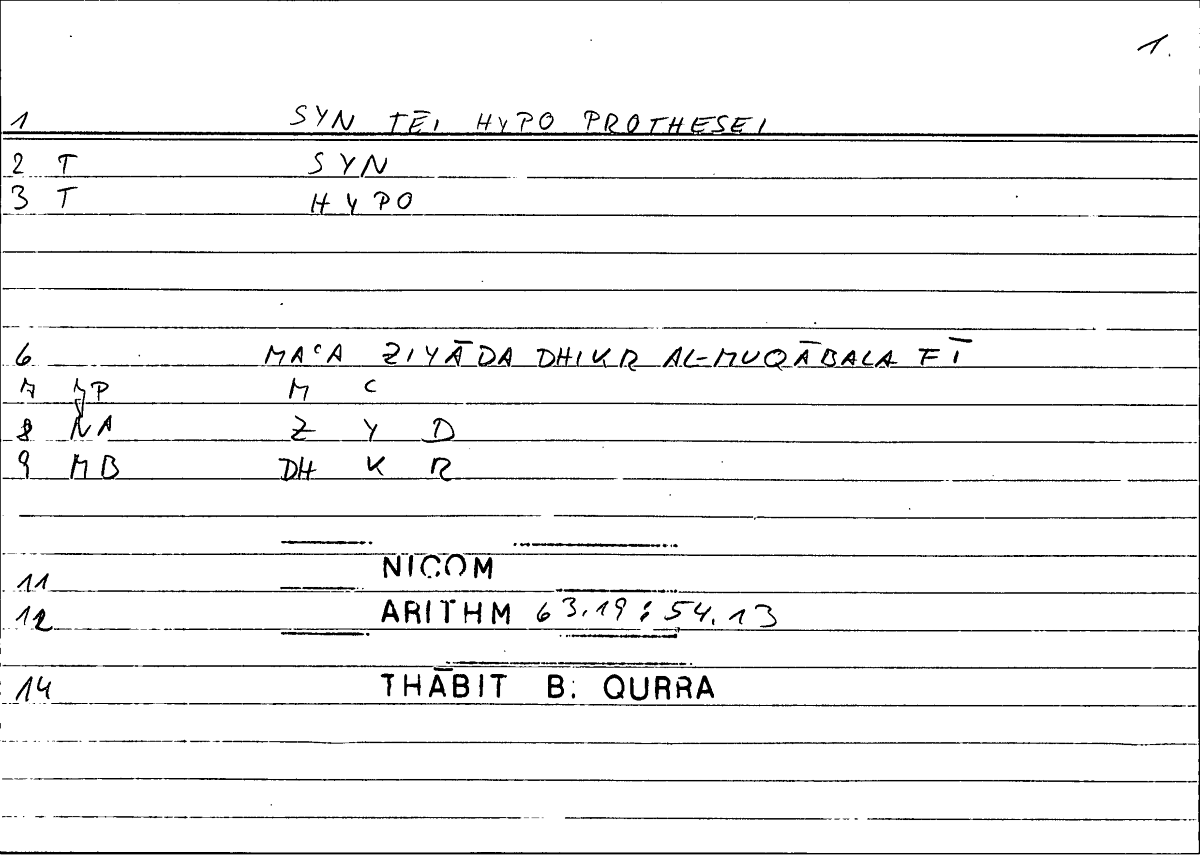 1.
1 SYN TĒI HYPO PROTHESEI
2 T SYN
3 T HYPO
6 MAᶜA ZIYĀDA DHIKR AL-MUQĀBALA FĪ
7 MP M ᶜ
8 NA Z Y D
9 MB DH K R
11 NICOM
12 ARITHM 63.19 : 54.13
14 THĀBIT B. QURRA